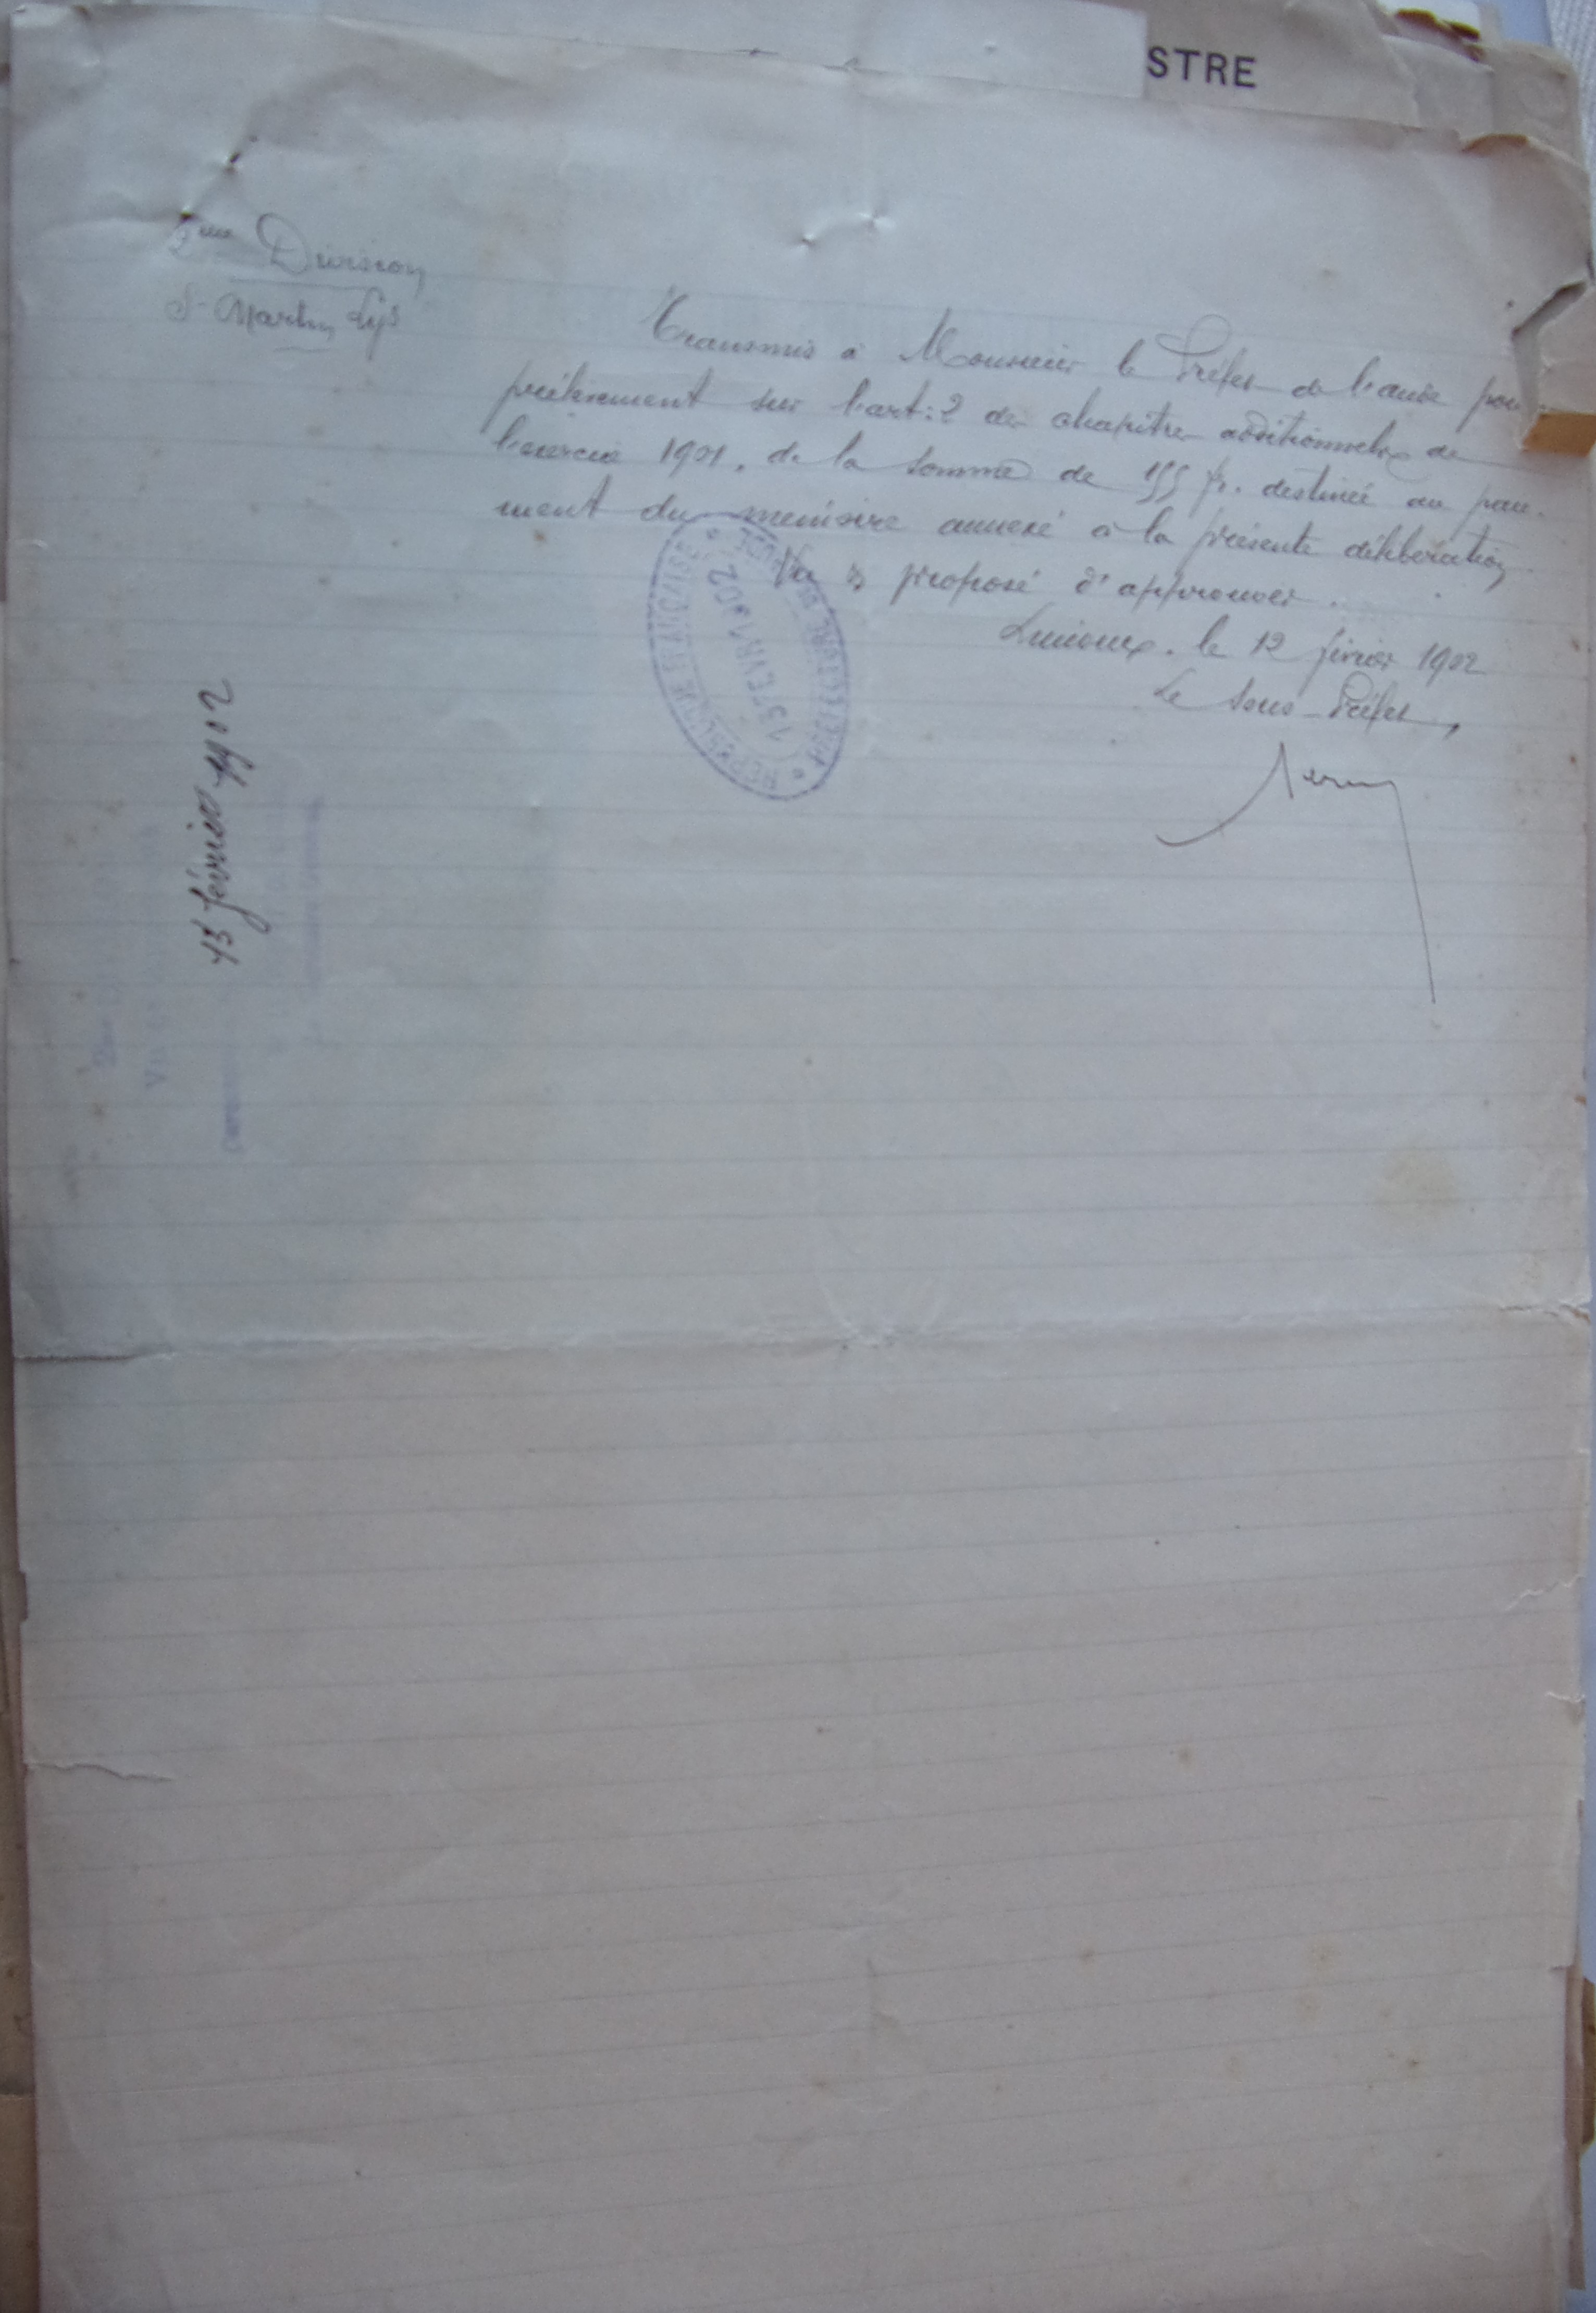 STRE
2me Division
St Martin Lys
Transmis à Monsieur le Préfet de l'aude pour
prélèvement sur l'art: 2 des chapitres additionnels de
l'exercice 1901, de la somme de 155 fr. destinée au paie-
ment du mémoire annexé à la présente délibération
Vu & proposé d'approuver.
Limoux, le 12 février 1902
Le Sous-Préfet,
PRÉFECTURE DE L'AUDE
13 FEVR 1902
DIVISION
13 février 1902